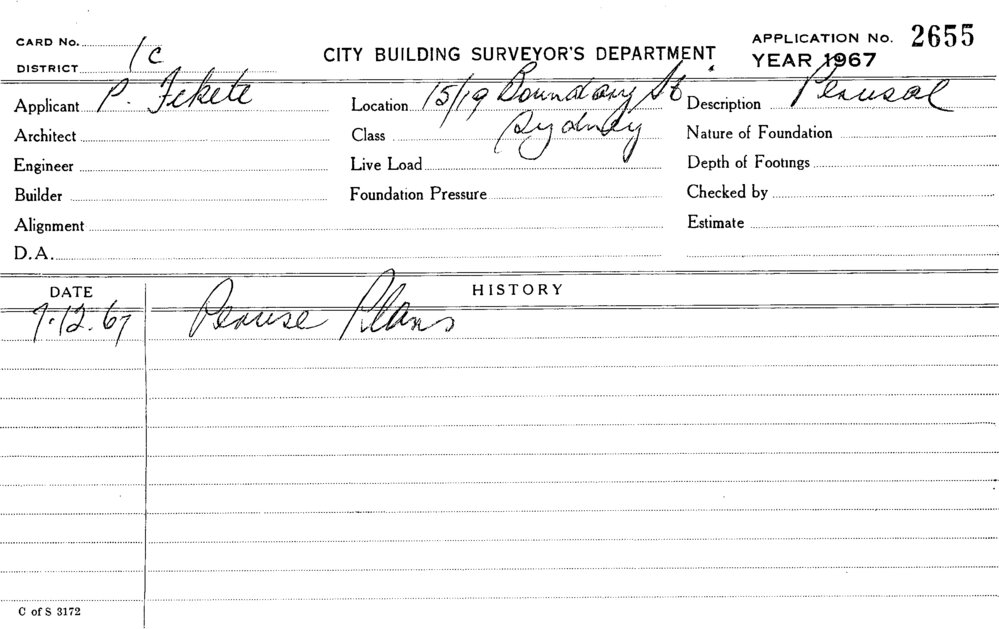 CARD No. 1c
DISTRICT
CITY BUILDING SURVEYOR'S DEPARTMENT
APPLICATION No. 2655
YEAR 1967
Applicant P. Fekete Location 15/19 Boundary St Description Perusal
Architect Class Sydney Nature of Foundation
Engineer Live Load Depth of Footings
Builder Foundation Pressure Checked by
Alignment Estimate
D.A.
DATE HISTORY
7.12.67 Peruse Plans
C of S 3172